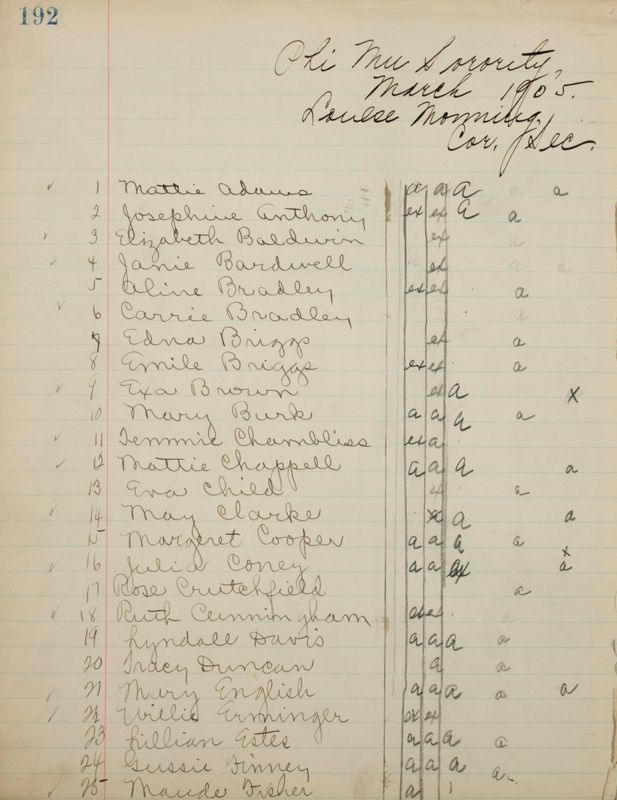 192
Phi Mu Sorority,
March 1905.
Louise Monning,
Cor. Sec.
1 Mattie Adams a a a a
2 Josephine Anthony ex ex a a
3 Elizabeth Baldwin ex
4 Janie Bardwell ex
5 Aline Bradley ex ex a
6 Carrie Bradley
7 Edna Briggs ex a
8 Emile Briggs ex ex a
9 Exa Brown ex a x
10 Mary Burk a a a a
11 Temmie Chambliss ex a
12 Mattie Chappell a a a a
13 Eva Child ex a
14 May Clarke a a
15 Margeret Cooper a a a a
16 Julia Coney a a ex x a
17 Rose Crutchfield a
18 Ruth Cunningham ex ex
19 Lyndall Davis a a a a
20 Tracy Duncan a a
21 Mary English a a a a a
22 Willie Erminger ex ex
23 Lillian Estes a a a a
24 Gussie Finney a a a a
25 Maude Fisher a